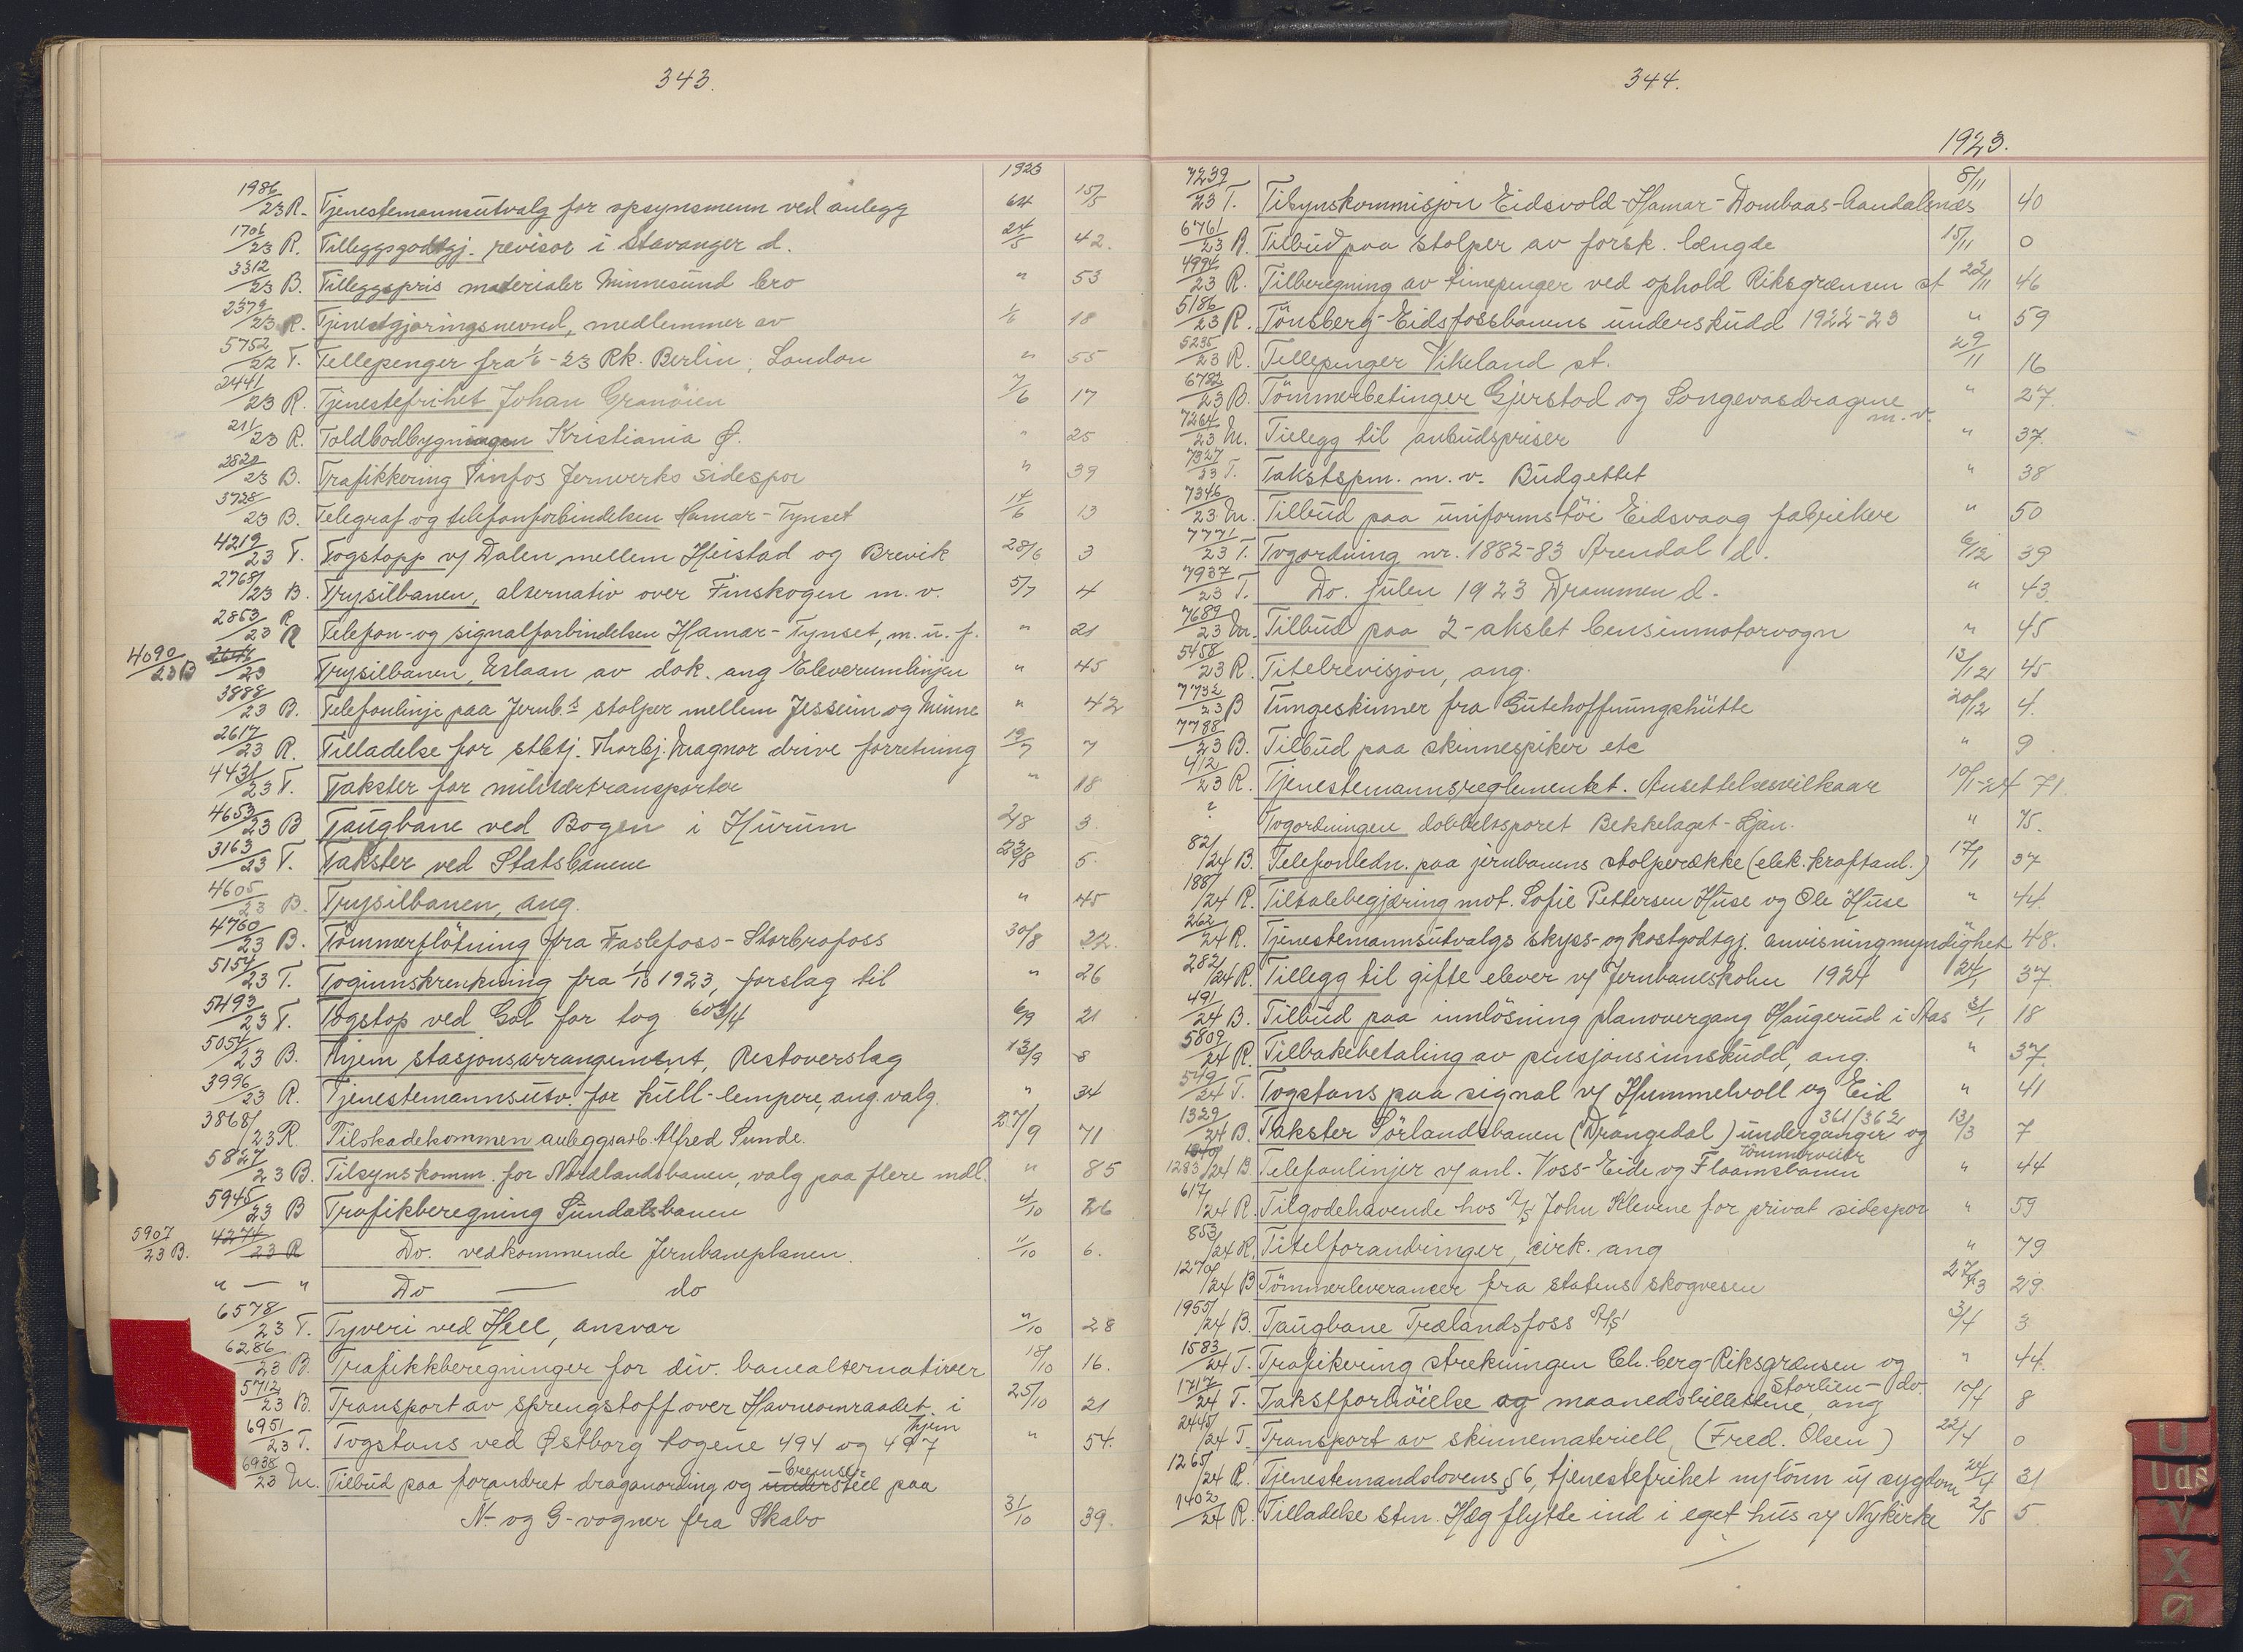 343.
1923
1986/23 R. Tjenestemannsutvalg for opsynsmenn ved anlegg 64 15/5
1706/23 R. Tilleggsgodtgj. revisor i Stavanger d. 24/5 42.
3312/23 B. Tilleggspris materialer Minnesund bro " 53
2379/23 R. Tjenestgjøringsnevnd, medlemmer av 1/6 18
5752/22 T. Tellepenger fra 1/6-23 Rk. Berlin, London " 55
2441/23 R. Tjenestefrihet Johan Granöien 7/6 17
211/23 R. Toldbodbygningen Kristiania Ø. " 25
2820/23 B. Trafikkering Tinfos Jernverks sidespor " 39
3728/23 B. Telegraf og telefonforbindelsen Hamar-Tynset 14/6 13
4219/23 T. Togstopp v/ Dalen mellem Heistad og Brevik 28/6 3
2768/23 B. Trysilbanen, alternativ over Finskogen m. v. 5/7 4
2853/23 R Telefon- og signalforbindelsen Hamar-Tynset, m. u. f. " 21
4090/23 B Trysilbanen, Utlaan av dok. ang Eleverumlinjen " 45
3888/23 B. Telefonlinje paa Jernb.s stolper mellem Jessheim og Minne " 42
2617/23 R. Tilladelse for stbtj. Thorbj. Magnor drive forretning 19/7 7
4431/23 T. Takster for militærtransporter " 18
4653/23 B Taugbane ved Bogen i Hurum 2/8 3.
3163/23 T. Takster ved Statsbanene 23/8 5.
4605/23 B. Trysilbanen, ang. " 45
4760/23 B. Tömmerflötning fra Faslefoss-Storbrofoss 30/8 22.
5154/23 T. Toginnskrenkning fra 1/10 1923, forslag til " 26
5493/23 T. Togstop ved Gol for tog 603/4 6/9 21
5054/23 B. Thjem stasjonsarrangement, Restoverslag 13/9 8
3996/23 R. Tjenestemannsutv. for kull-lempere, ang. valg. " 34
3868/23 R. Tilskadekommen anleggsarb. Alfred Sunde. 27/9 71
5827/23 B. Tilsynskomm. for Nordlandsbanen, valg paa flere mdl. " 85
5945/23 B Trafikberegning Sundalsbanen 4/10 26
5907/23 B. 4274/23 R Do. vedkommende Jernbaneplanen. 11/10 6.
" — " Do — do
6578/23 T. Tyveri ved Hell, ansvar "/10 28
6286/23 B. Trafikkberegninger for div. banealternativer 18/10 16.
5712/23 B. Transport av sprengstoff over Havneomraadet i Thjem 25/10 21
6951/23 T. Togstans ved Østborg togene 494 og 497 " 54.
6938/23 M. Tilbud paa forandret draganordning og understell bremser paa
N- og G-vogner fra Skabo 31/10 39.
344.
1923.
7239/23 T. Tilsynskommisjon Eidsvold-Hamar-Dombaas-Aandalsnæs 8/11 40
6761/23 B. Tilbud paa stolper av forsk. længde 15/11 0
4994/23 R. Tilberegning av timepenger ved ophold Riksgrænsen st 22/11 46
5186/23 R. Tönsberg-Eidsfossbanens underskudd 1922-23 " 59
5235/23 R. Tellepenger Vikeland st. 29/11 16
6782/23 B. Tömmerbetinger Gjerstad og Songevasdragene m. v. " 27.
7264/23 M. Tillegg til anbudspriser " 37.
7327/23 T. Takstspm. m. v. Budgettet " 38
7346/23 M. Tilbud paa uniformstöi Eidsvaag fabrikker " 50
7771/23 T. Togordning nr. 1882-83 Arendal d. 6/12 39
7937/23 T. Do. julen 1923 Drammen d. " 43.
7689/23 M. Tilbud paa 2-akslet bensinmotorvogn " 45
5458/23 R. Titelrevisjon, ang. 13/12 45
7732/23 B Tungeskinner fra Gutehoffnungshütte 20/12 4.
7788/23 B. Tilbud paa skinnespiker etc " 9
412/23 R. Tjenestemannsreglementet. Ansettelsesvilkaar 10/1-24 71.
? Togordningen dobbeltsporet Bekkelaget-Ljan. " 75.
82/24 B. Telefonledn. paa jernbanens stolperække (elek. kraftanl.) 17/1 37
188/24 R. Tiltalebegjæring mot. Sofie Pettersen Huse og Ole Huse " 44.
262/24 R. Tjenestemannsutvalgs skyss- og kostgodtgj. anvisningmyndighet 48.
282/24 R. Tillegg til gifte elever v/ Jernbaneskolen 1924 24/1 37.
491/24 B. Tilbud paa innlösning planovergang Haugerud i Aas 31/1 18
5809/24 R. Tilbakebetaling av pensjonsinnskudd, ang. " 37.
549/24 T. Togstans paa signal v/ Hummelvoll og Eid " 41
1329/24 B. Takster Sörlandsbanen (Drangedal) underganger 361/362 og tömmerveier 13/3 7
1283/24 B Telefonlinjer v/ anl. Voss-Eide og Flaamsbanen " 44
617/24 R. Tilgodehavende hos A/S John Klevene for privat sidespor " 59
853/24 R. Titelforandringer, cirk. ang " 79
1270/24 B Tömmerleverancer fra statens skogvesen 27/3 29.
1955/24 B. Taugbane Trælandsfoss A/S 3/4 3
1583/24 T. Trafikering strekningen Ch.berg-Riksgrænsen og Storlien-do. " 44.
1717/24 T. Takstforhöielse og maanedsbillettene, ang 10/4 8
2445/24 T. Transport av skinnemateriell (Fred. Olsen) 22/4 0
1265/24 R. Tjenestemandslovens § 6, tjenestefrihet m/lönn u/ sygdom 24/4 31
1402/24 R. Tilladelse stm. Hæg flytte ind i eget hus v/ Nykirke 2/5 5
U
Uds
V
X
Ø